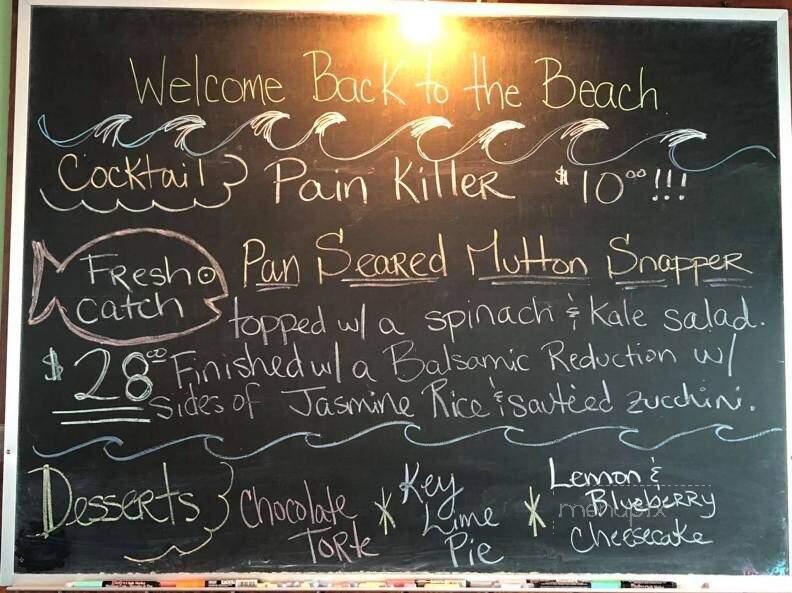 Welcome Back to the Beach
Cocktail Pain Killer $10.00!!!
Fresh catch
Pan Seared Mutton Snapper
topped w/ a spinach & Kale salad.
$28.00 Finished w/ a Balsamic Reduction w/
sides of Jasmine Rice & sautéed zucchini.
Desserts
Chocolate Torte * Key Lime Pie * Lemon & Blueberry Cheesecake
menupix